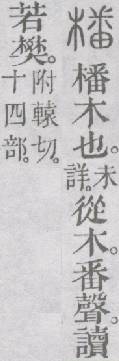 橎 橎木也。未詳。從木。番聲。讀
若樊。附轅切。十四部。